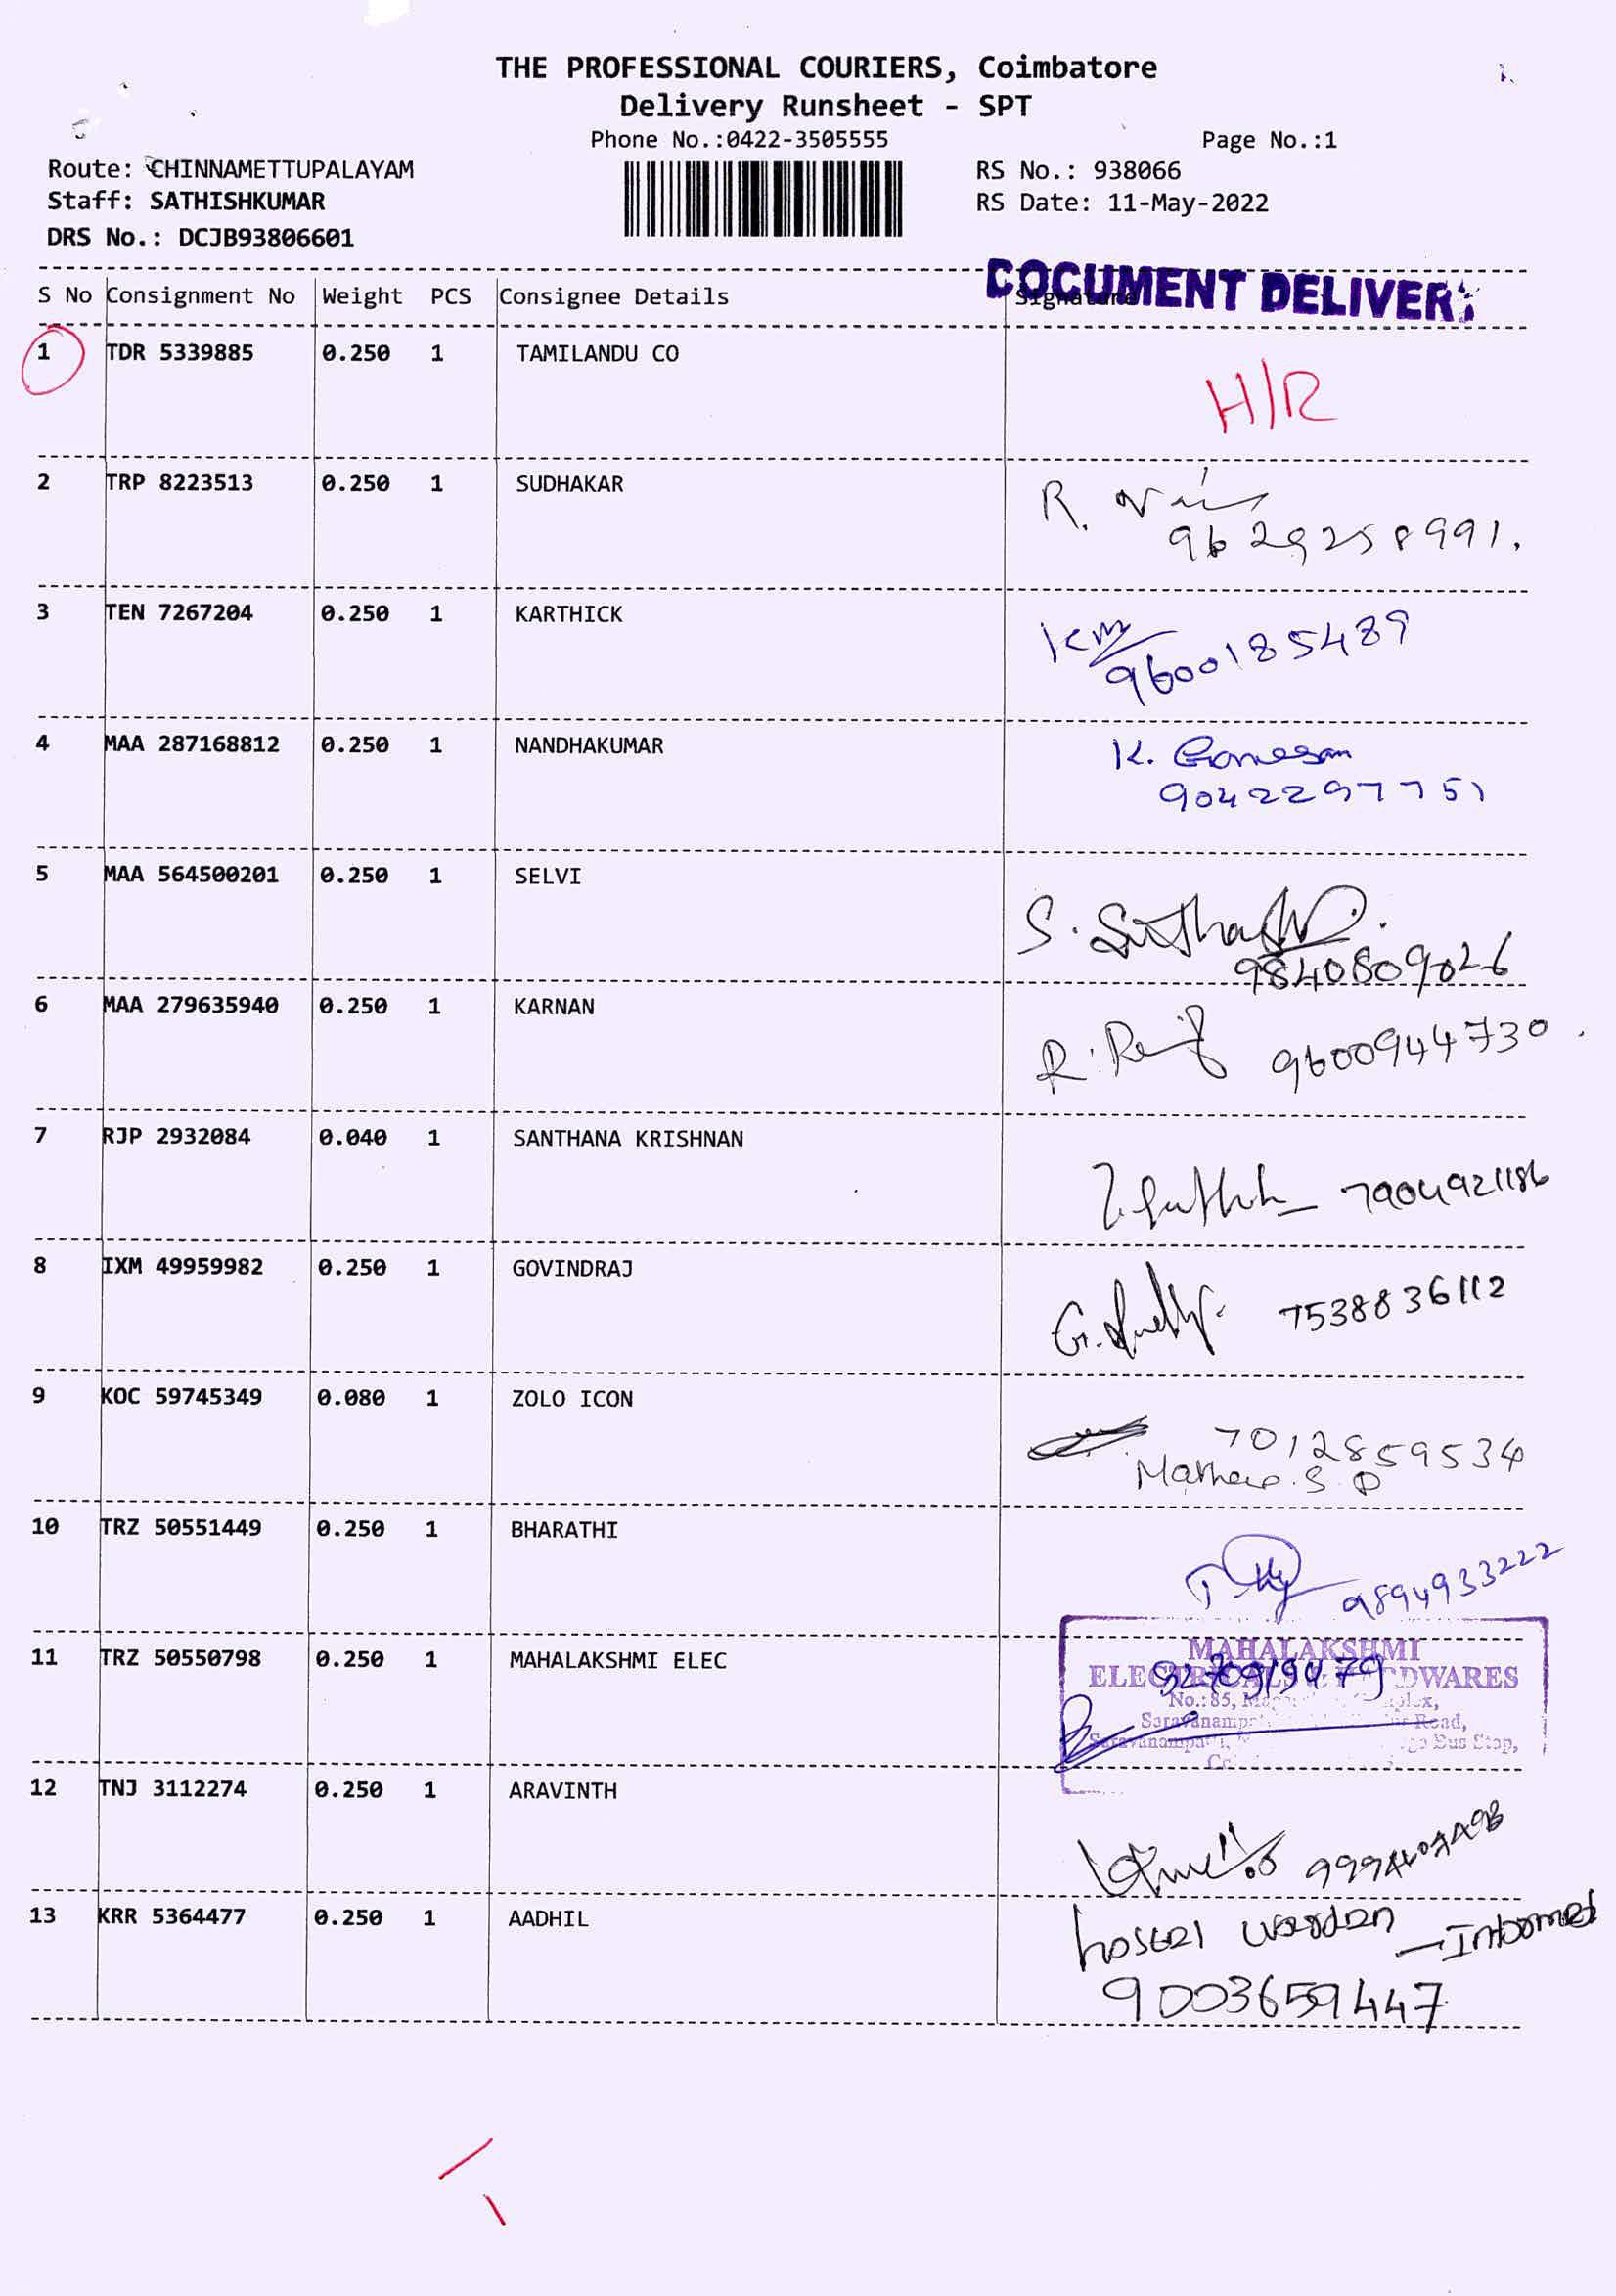 THE PROFESSIONAL COURIERS, Coimbatore
Delivery Runsheet - SPT
Phone No.:0422-3505555 Page No.:1
Route: CHINNAMETTUPALAYAM RS No.: 938066
Staff: SATHISHKUMAR RS Date: 11-May-2022
DRS No.: DCJB93806601
DOCUMENT DELIVERY
S No Consignment No Weight PCS Consignee Details Signature
1 TDR 5339885 0.250 1 TAMILANDU CO
H/R
2 TRP 8223513 0.250 1 SUDHAKAR
R.
9629258991.
3 TEN 7267204 0.250 1 KARTHICK
9600185489
4 MAA 287168812 0.250 1 NANDHAKUMAR
K. Ganesan
9042297751
5 MAA 564500201 0.250 1 SELVI
S.
9840809026
6 MAA 279635940 0.250 1 KARNAN
R. 9600944730.
7 RJP 2932084 0.040 1 SANTHANA KRISHNAN
7904921186
8 IXM 49959982 0.250 1 GOVINDRAJ
G. 7538836112
9 KOC 59745349 0.080 1 ZOLO ICON
7012859534
Mathew. S. P
10 TRZ 50551449 0.250 1 BHARATHI
9894933222
11 TRZ 50550798 0.250 1 MAHALAKSHMI ELEC
MAHALAKSHMI
No.: 85,
Road,
Bus Stop,
12 TNJ 3112274 0.250 1 ARAVINTH
13 KRR 5364477 0.250 1 AADHIL
hostel warden - Informed
9003659447